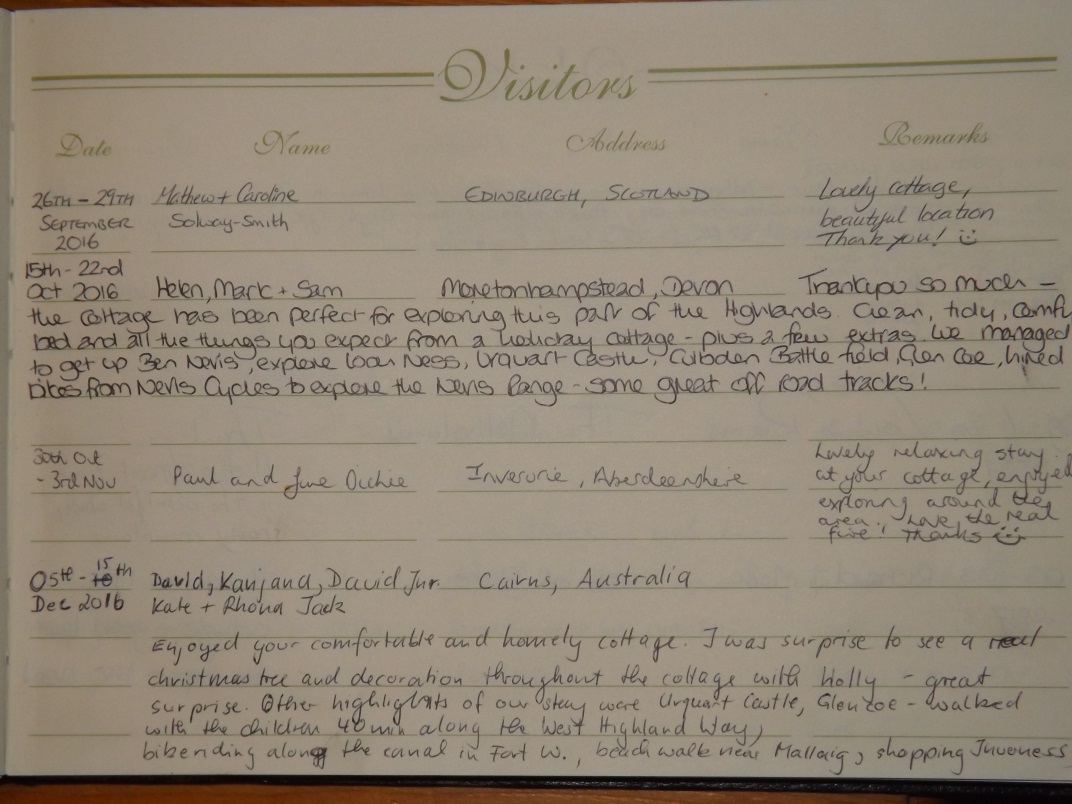 Visitors
Date Name Address Remarks
26TH - 29TH Mathew + Caroline EDINBURGH, SCOTLAND Lovely cottage,
SEPTEMBER Solway-Smith beautiful location
2016 Thank you!
15th - 22nd
Oct 2016 Helen, Mark + Sam Moretonhampstead, Devon Thankyou so much -
the cottage has been perfect for exploring this part of the Highlands. Clean, tidy, comfy
bed and all the things you expect from a holiday cottage - plus a few extras. We managed
to get up Ben Nevis, explore Loch Ness, Urquart Castle, Culloden Battle field, Glen Coe, hired
bikes from Nevis Cycles to explore the Nevis Range - some great off road tracks!
30th Oct Lovely relaxing stay
- 3rd Nov Paul and June Inverurie, Aberdeenshire at your cottage, enjoyed
exploring around the
area. Love the real
fire! Thanks
05th - 15th David, Kanjana, David Jnr. Cairns, Australia
Dec 2016 Kate + Rhona Jack
Enjoyed your comfortable and homely cottage. I was surprise to see a real
christmas tree and decoration throughout the cottage with Holly - great
surprise. Other highlights of our stay were Urquart Castle, Glencoe - walked
with the children 40 min along the West Highland Way,
along the canal in Fort W., beach walk near Mallaig, shopping Inverness